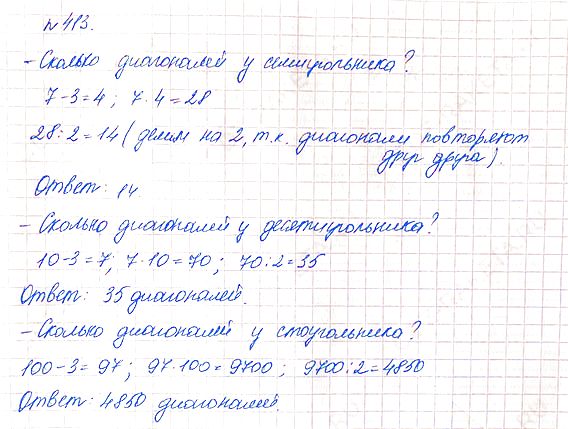 № 413.
- Сколько диагоналей у семиугольника?
7-3=4; 7·4=28
28:2=14 (делим на 2, т.к. диагонали повторяют
друг друга).
Ответ: 14
- Сколько диагоналей у десятиугольника?
10-3=7; 7·10=70; 70:2=35
Ответ: 35 диагоналей.
- Сколько диагоналей у стоугольника?
100-3=97; 97·100=9700; 9700:2=4850
Ответ: 4850 диагоналей.